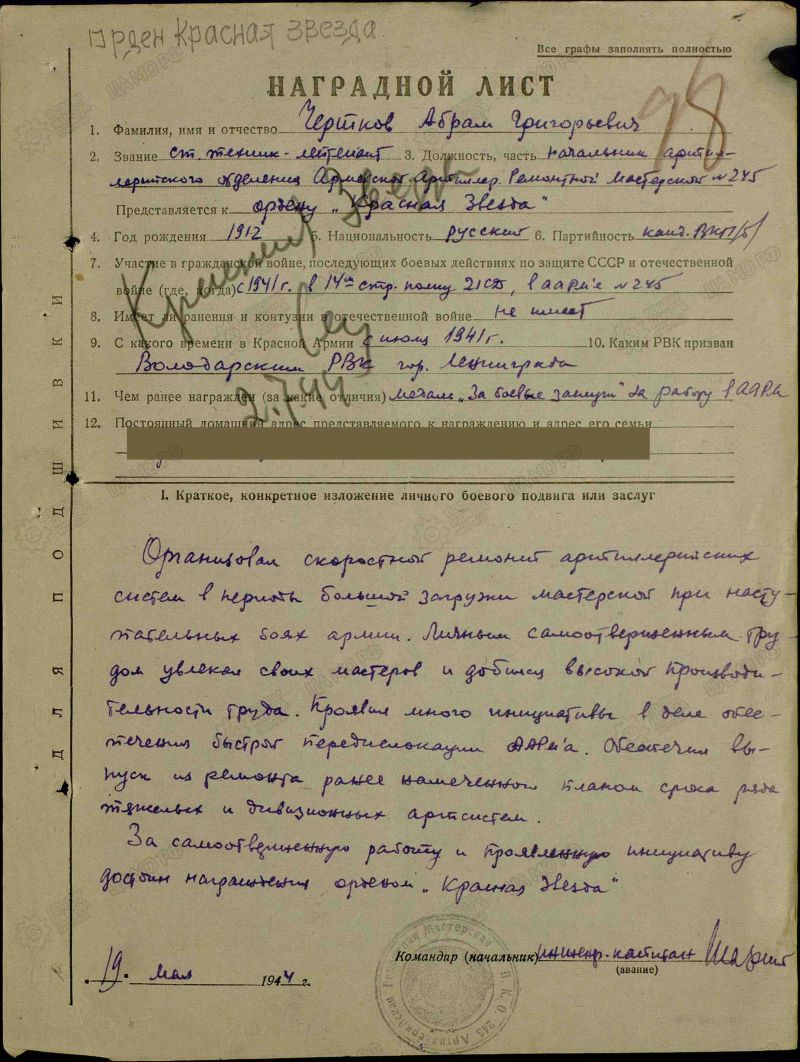 Орден Красная Звезда
Все графы заполнять полностью
НАГРАДНОЙ ЛИСТ
98
1. Фамилия, имя и отчество Чертков Абрам Григорьевич
2. Звание ст. техник-лейтенант 3. Должность, часть начальник артил-
лерийского отделения Армейской Артиллер. Ремонтной Мастерской №245
Представляется к ордену „Красная Звезда"
4. Год рождения 1912 5. Национальность русский 6. Партийность канд. ВКП/б/
7. Участие в гражданской войне, последующих боевых действиях по защите СССР и отечественной
войне (где, когда) с 1941 г. в 14ом стр. полку 21 СД, в ААРМ'е №245
8. Имеет ли ранения и контузии в отечественной войне не имеет
9. С какого времени в Красной Армии с июля 1941 г. 10. Каким РВК призван
Володарским РВК гор. Ленинграда
11. Чем ранее награжден (за какие отличия) медаль „За боевые заслуги" за работу в ААРМ
12. Постоянный домашний адрес представляемого к награждению и адрес его семьи
Красная Звезда
2.7.44
I. Краткое, конкретное изложение личного боевого подвига или заслуг
Организовал скоростной ремонт артиллерийских
систем в периоды большой загрузки мастерской при насту-
пательных боях армии. Личным самоотверженным тру-
дом увлекал своих мастеров и добился высокой производи-
тельности труда. Проявил много инициативы в деле обес-
печения быстрой передислокации ААРМ'а. Обеспечил вы-
пуск из ремонта ранее намеченного планом срока ряда
тяжелых и дивизионных артсистем.
За самоотверженную работу и проявленную инициативу
достоин награждения орденом „Красная Звезда"
19 мая 1944 г.
Командир (начальник) инженер-капитан
(звание)
Мастерская Н.К.О. 245
ДЛЯ ПОДШИВКИ